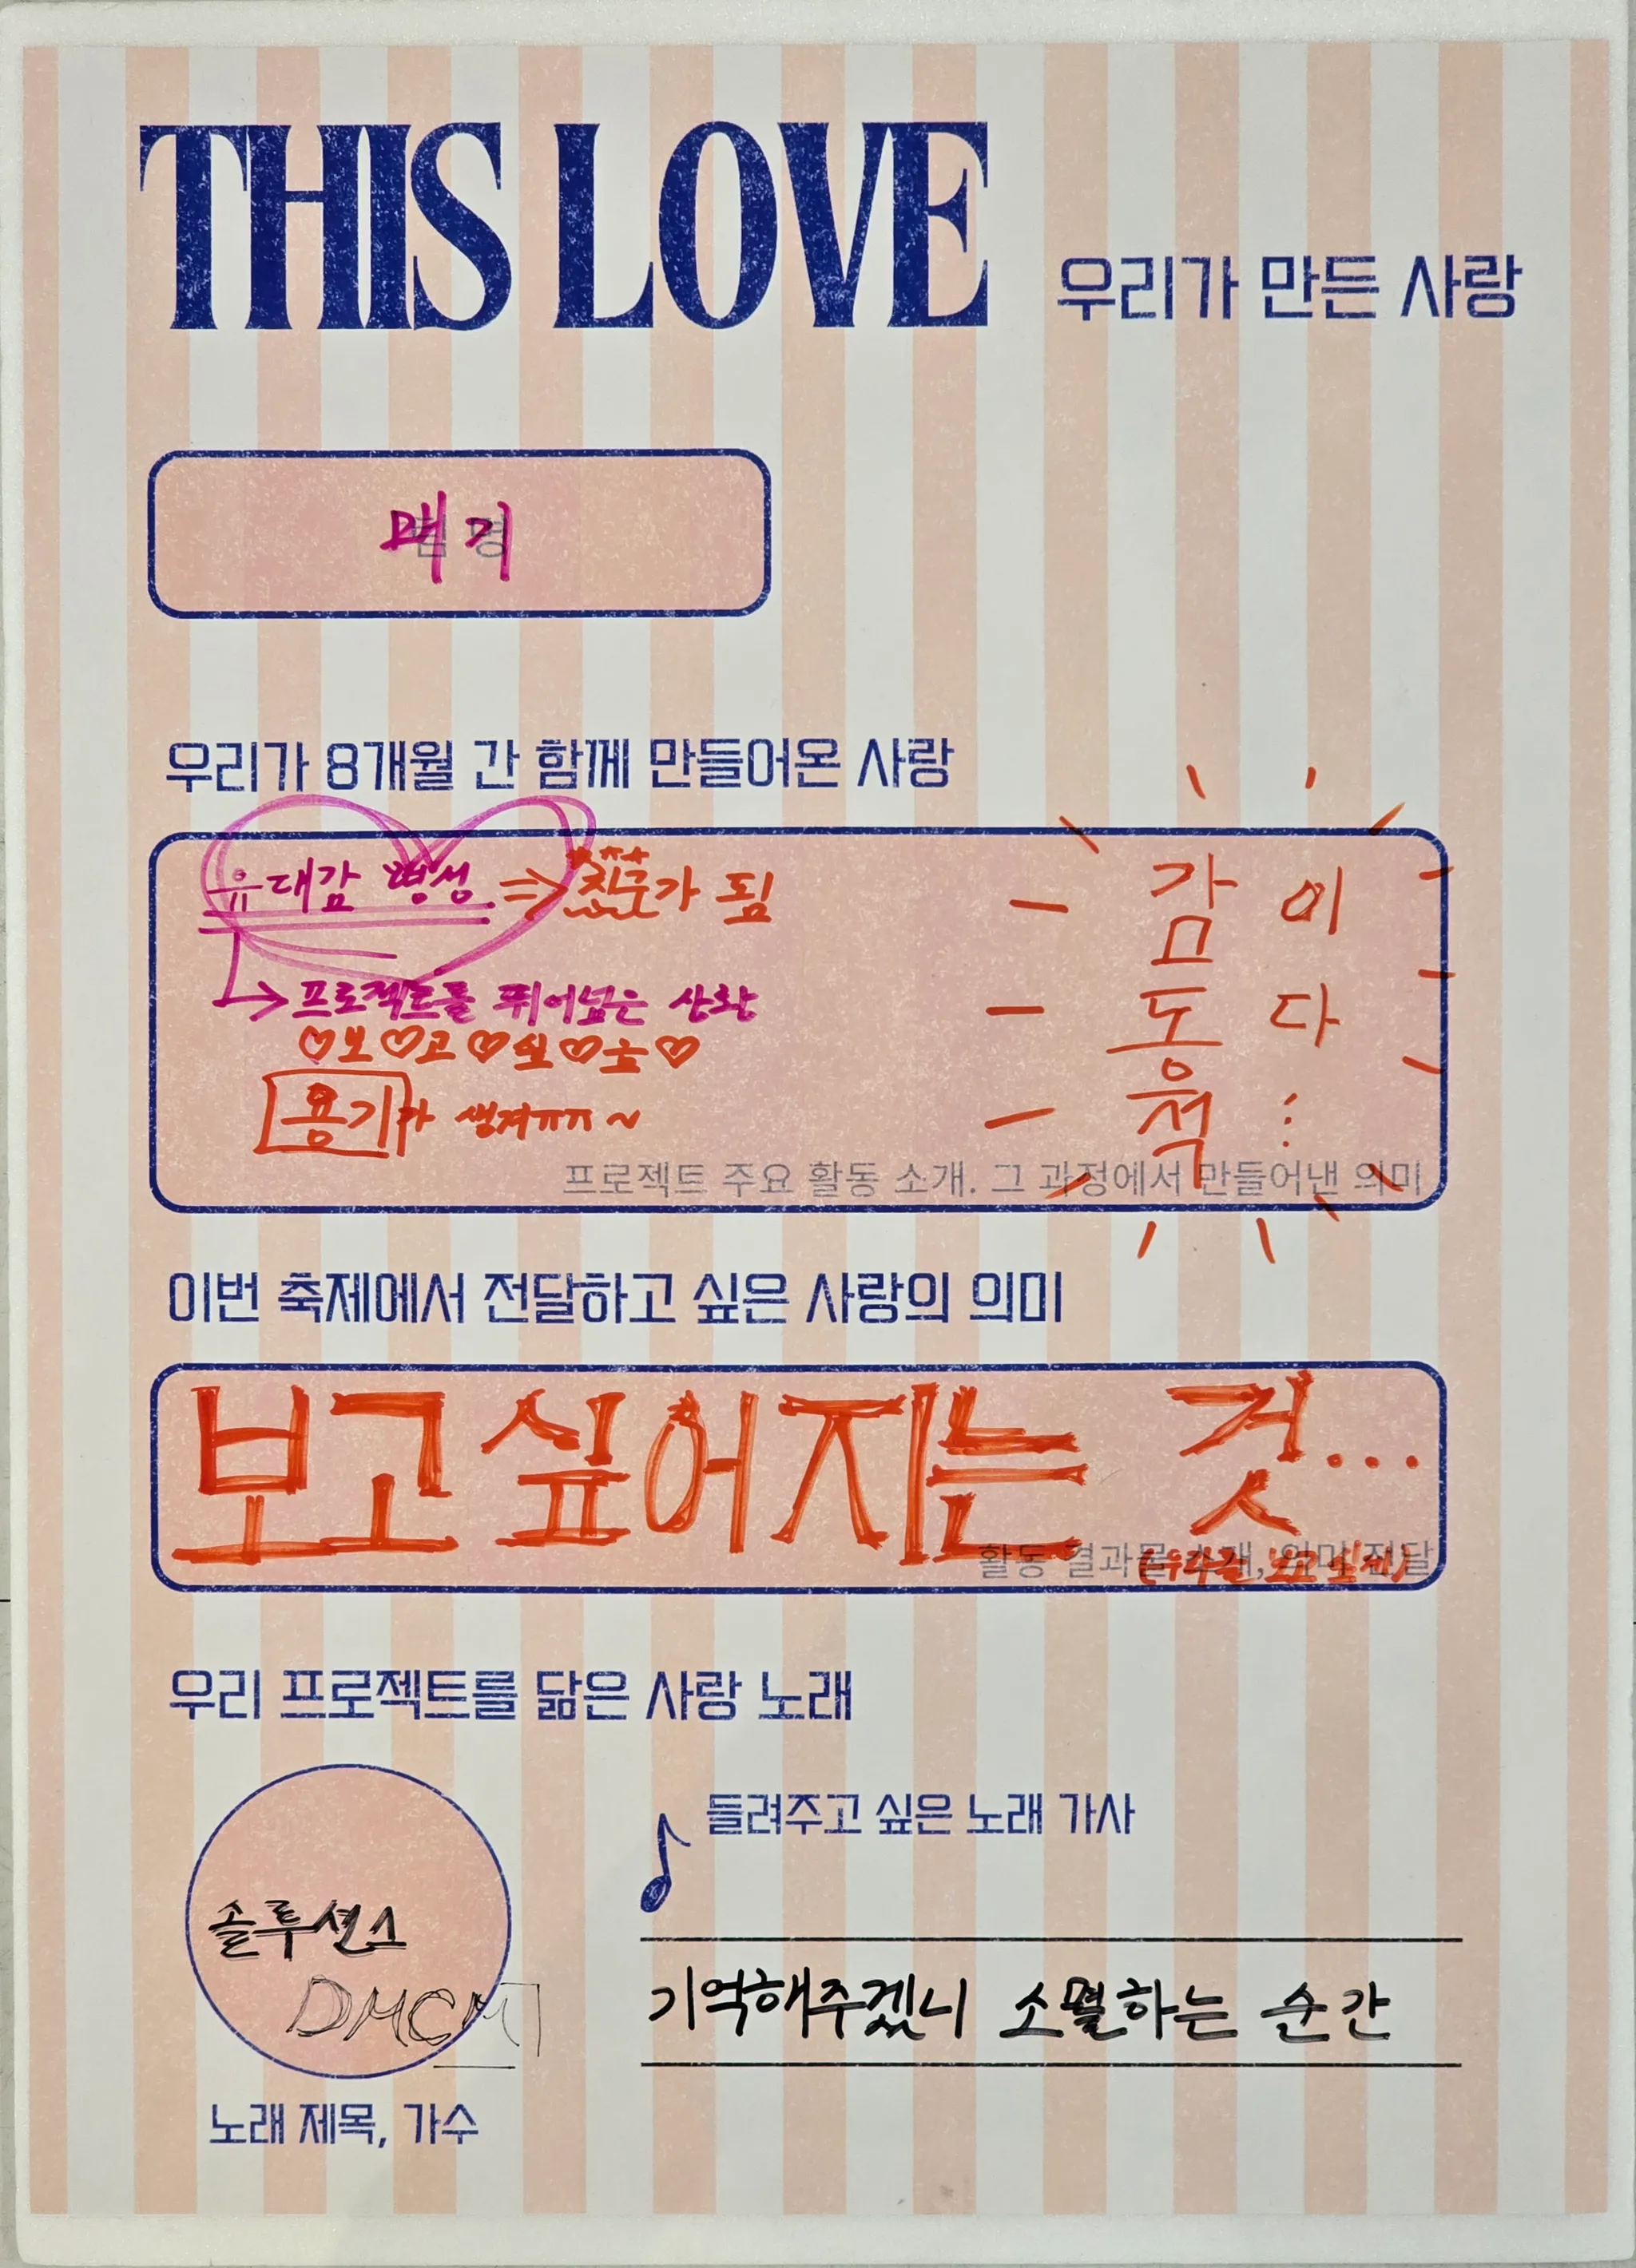 THIS LOVE 우리가 만든 사랑
매기
팀명
우리가 8개월 간 함께 만들어온 사랑
유대감 형성 => 친구가 됨
프로젝트를 뛰어넘은 사랑
♡보♡고♡싶♡소♡
용기가 생겨ㅠㅠ~
감동적
이다⋮
프로젝트 주요 활동 소개. 그 과정에서 만들어낸 의미
이번 축제에서 전달하고 싶은 사랑의 의미
보고싶어지는 것...
활동 결과물 소개, 의미 전달
우리 프로젝트를 닮은 사랑 노래
들려주고 싶은 노래 가사
솔루션스
기억해주겠니 소멸하는 순간
노래 제목, 가수